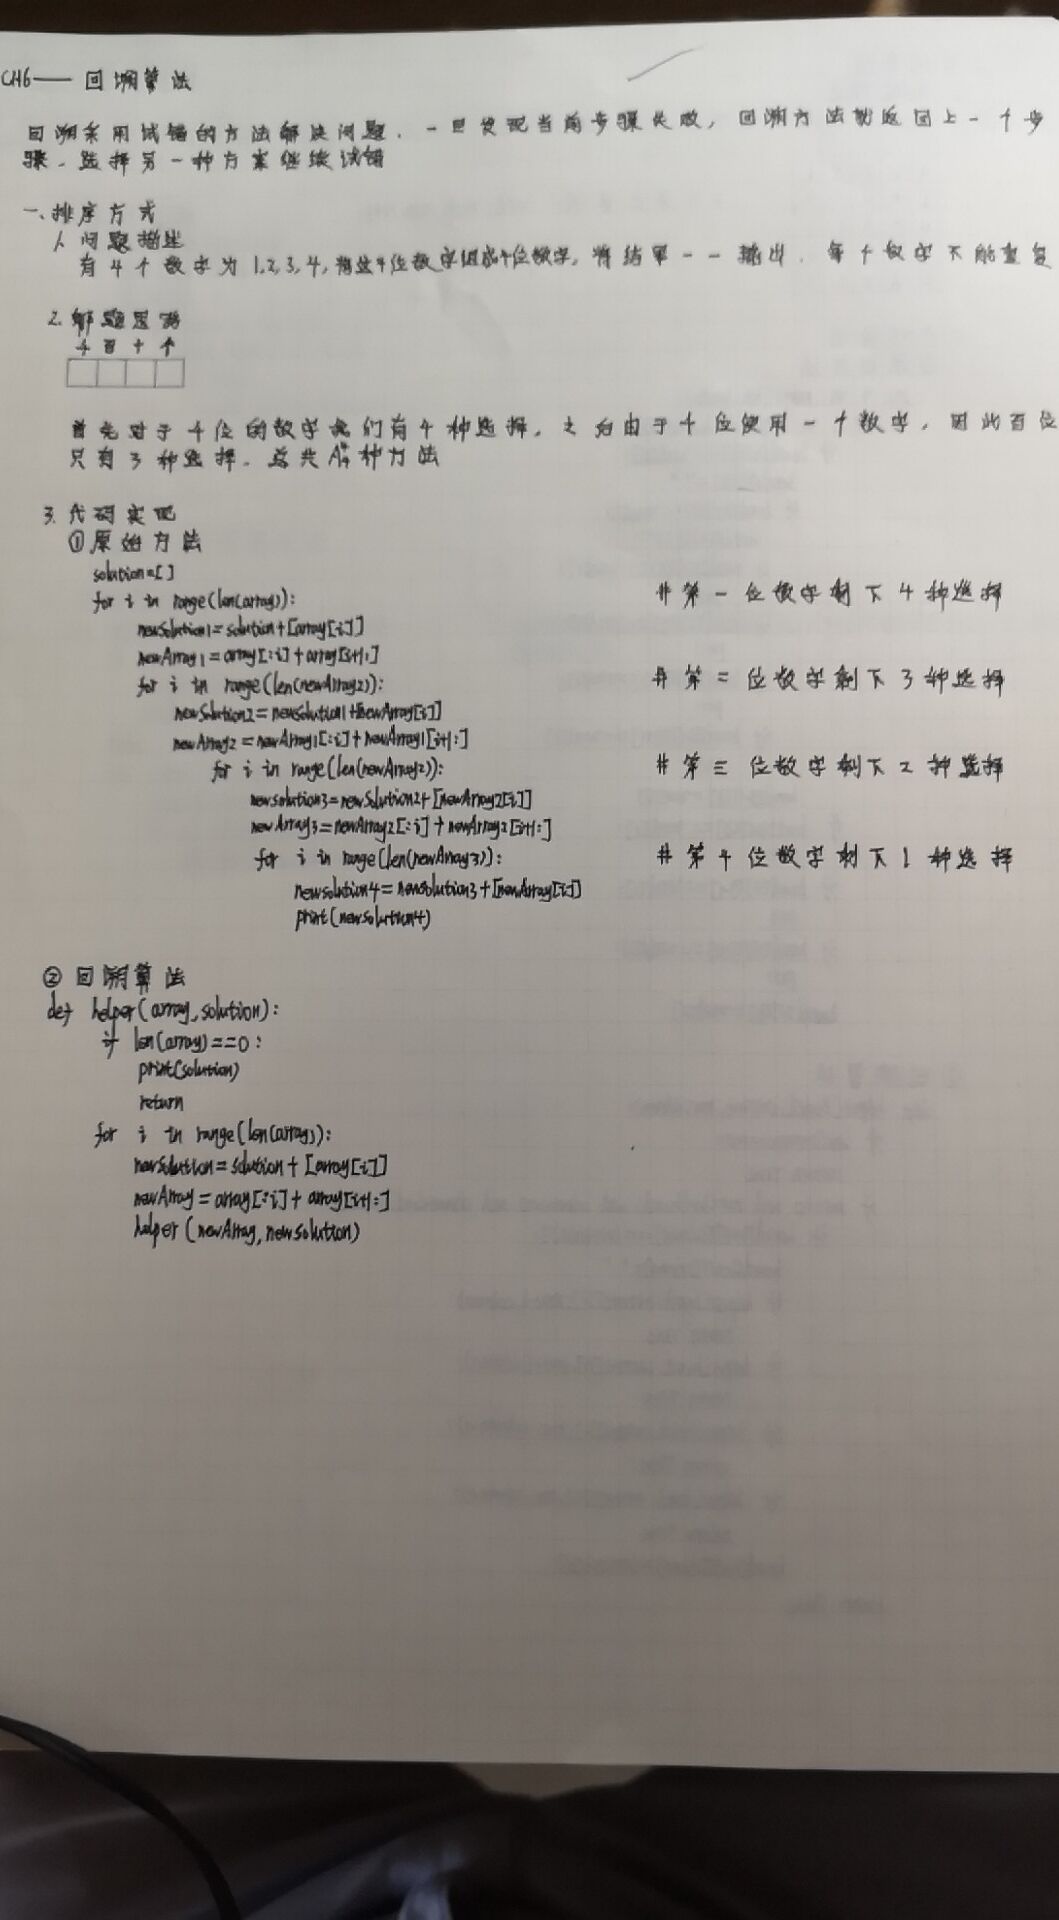 CH6——回溯算法
回溯采用试错的方法解决问题，一旦发现当前步骤失败，回溯方法就返回上一个步
骤，选择另一种方案继续试错
一、排序方式
1. 问题描述
有4个数字为1,2,3,4,将这4位数字组成4位数字，将结果一一输出，每个数字不能重复
2. 解题思路
千 百 十 个
首先对于千位的数字我们有4种选择，之后由于千位使用一个数字，因此百位
只有3种选择，总共A种方法
3. 代码实现
①原始方法
solution=[]
for i in range(len(array)): #第一位数字剩下4种选择
newSolution1=solution+[array[i]]
newArray1=array[:i]+array[i+1:]
for i in range(len(newArray2)): #第二位数字剩下3种选择
newSolution2=newsolution1+[newArray[i]]
newArray2=newArray1[:i]+newArray1[i+1:]
for i in range(len(newArray2)): #第三位数字剩下2种选择
newsolution3=newSolution2+[newArray2[i]]
newArray3=newArray2[:i]+newArray2[i+1:]
for i in range(len(newArray3)): #第四位数字剩下1种选择
newsolution4=newsolution3+[newArray[i]]
print(newsolution4)
②回溯算法
def helper(array,solution):
if len(array)==0:
print(solution)
return
for i in range(len(array)):
newSolution=solution+[array[i]]
newArray=array[:i]+array[i+1:]
helper(newArray,newsolution)